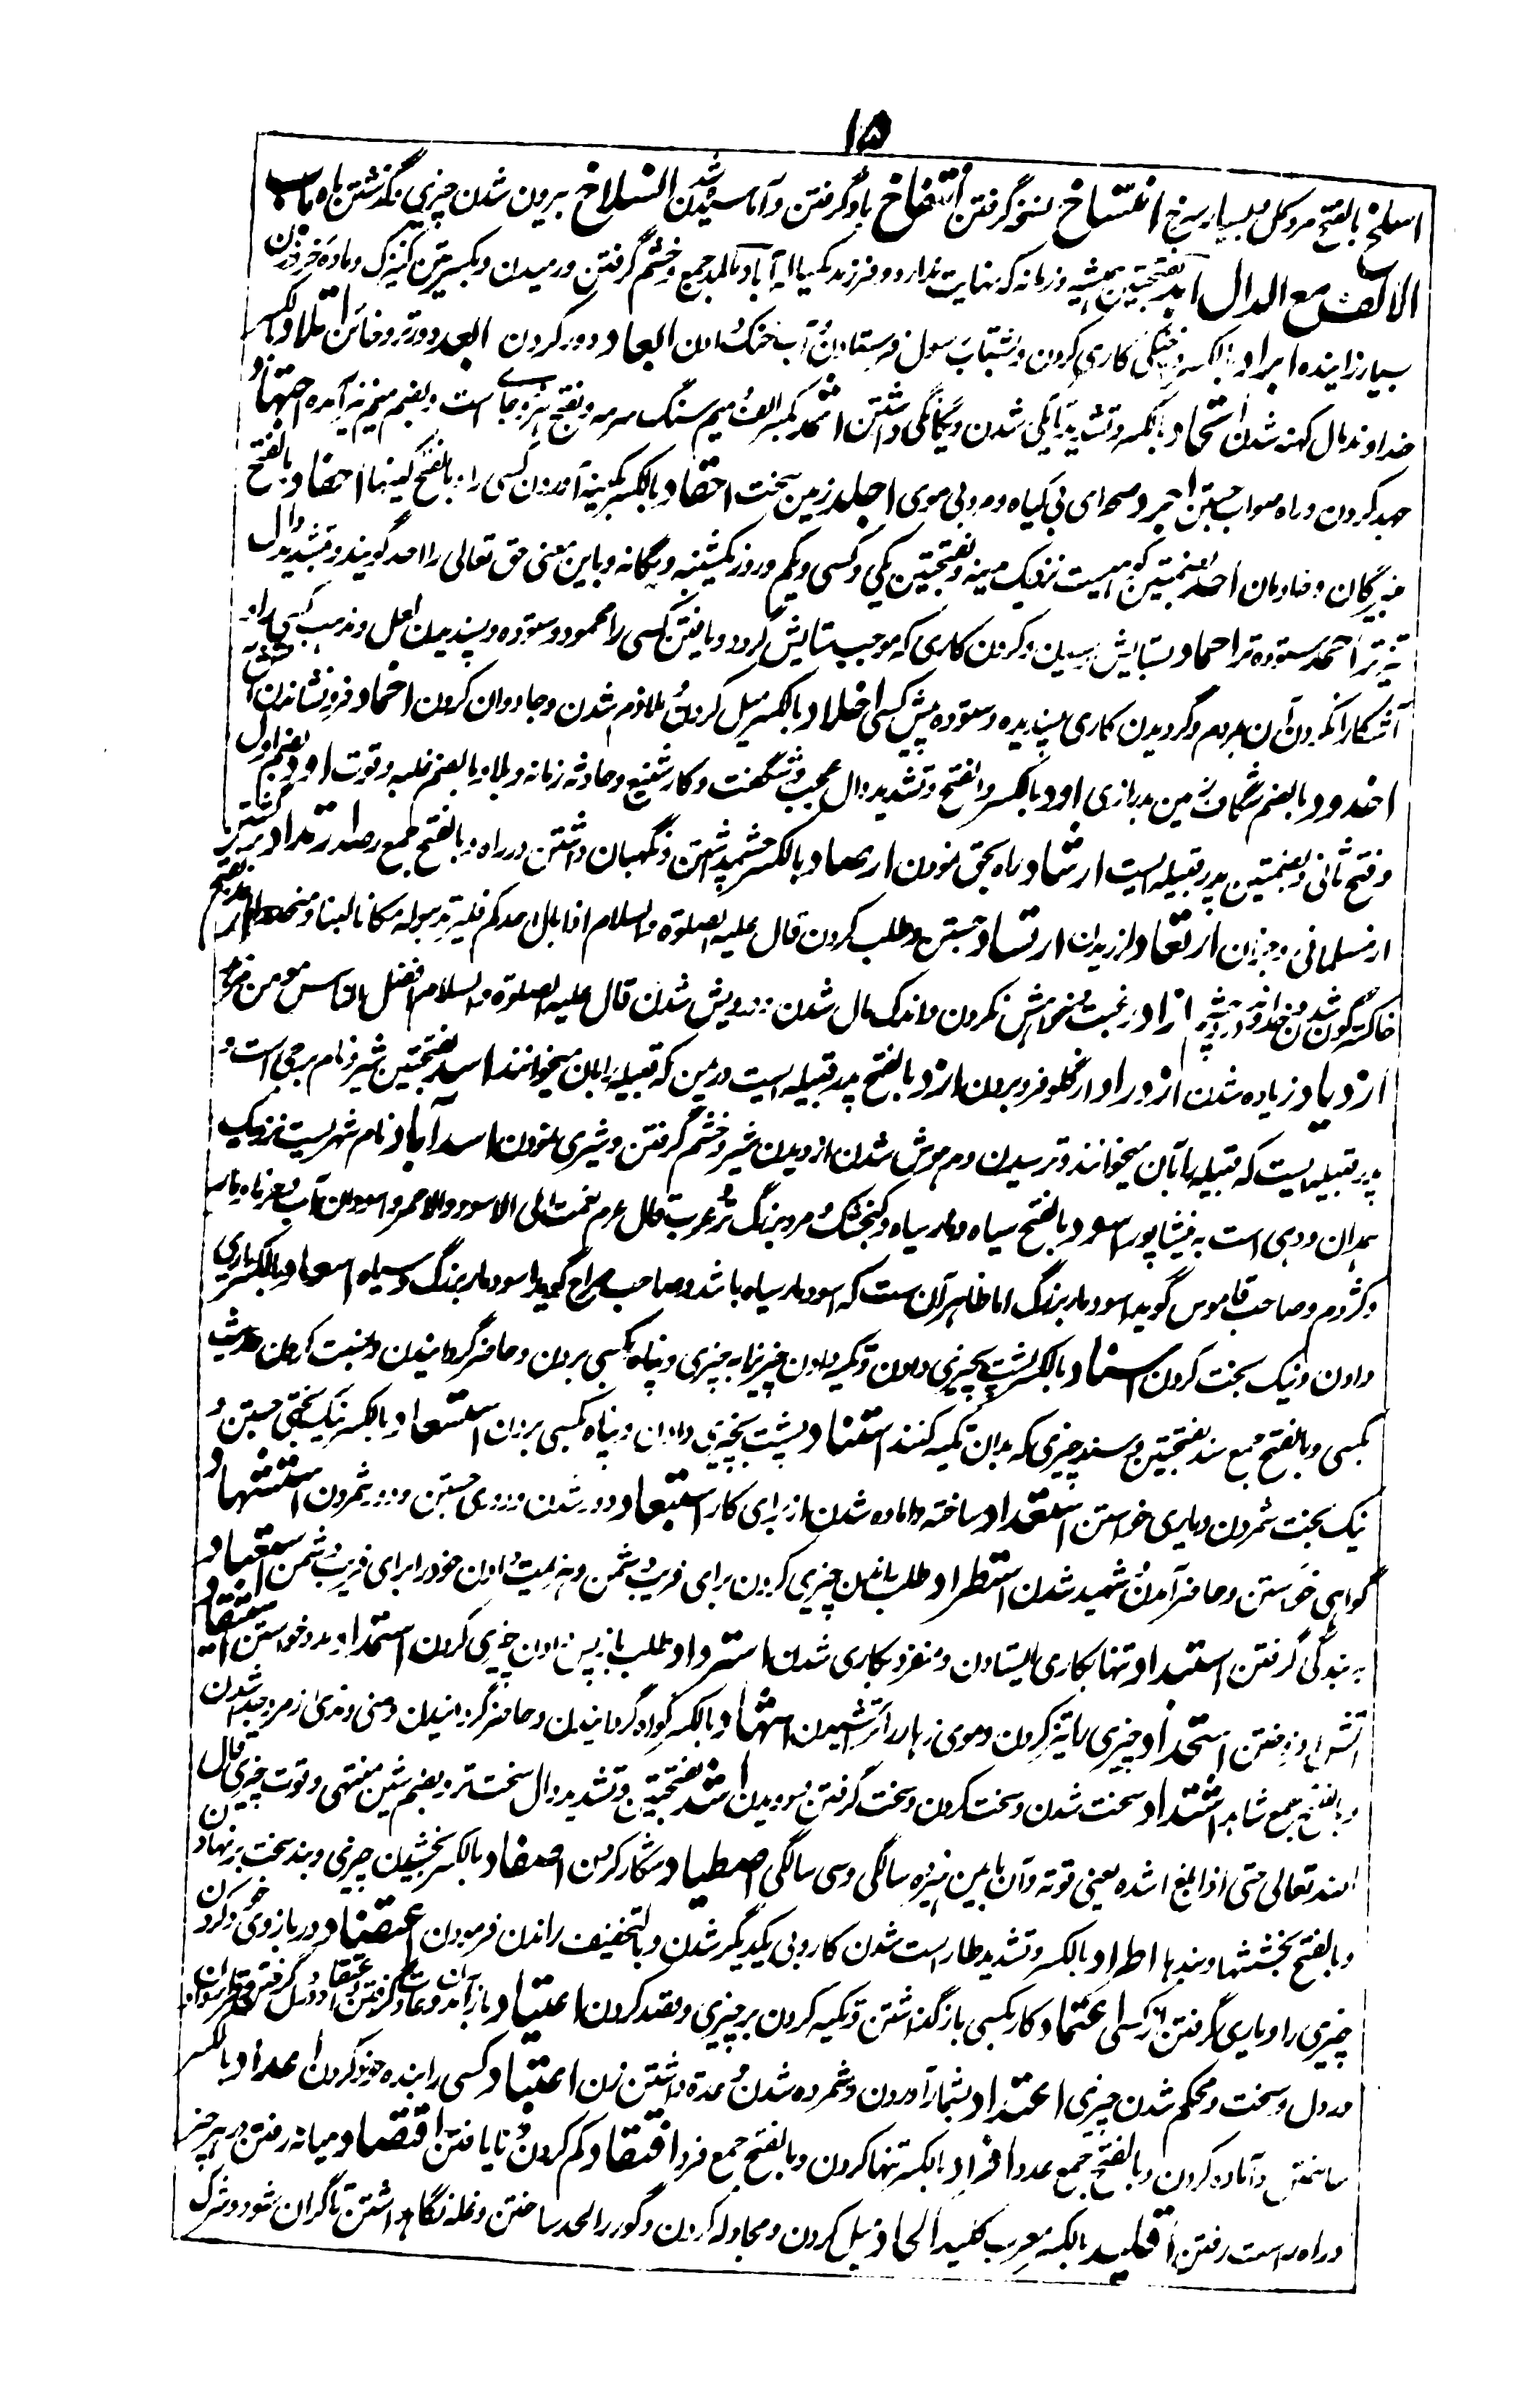 ۱۵
اسلخ بالفتح مرد کل و بسیار سرخ انتساخ نسخه گرفتن انتفاخ باد گرفتن و آماسیدن شدن انسلاخ بیرون شدن چیزی و گذشتن ماه باب
الالف مع الدال ابد بفتحتین همیشه و زمانه که نهایت ندارد و فرزند یکساله آباد بالمد جمع و خشم گرفتن و رمیدن و بکسرتین کنیزک و ماده خر و زن
بسیار زاینده ابراد بالکسر و خنکی کاری کردن و بشتاب رسول فرستادن و آب خنک دادن ابعاد دور کردن ابعد دورتر و خائن اتلاد بالکسر
خداوند مال کهنه شدن اتحاد بالکسر و تشدید تا یکی شدن و یگانگی داشتن اثمد بکسر الف و میم سنگ سرمه و بفتح نیز و جای است و بضم میم نیز آمده اجتهاد
جهد کردن و راه صواب جستن اجرد صحرای بی گیاه و مرد بی موی اجلد زمین سخت احقاد بالکسر بکینه آوردن کسی را و بالفتح کینها احفاد بالفتح
نبیرگان و خادمان احد بضمتین کوهیست نزدیک مدینه و بفتحتین یکی و کسی و یکم و روز یکشنبه و یگانه و باین معنی حق تعالی را احد گویند و بتشدید دال
تیزتر احمد ستوده تر احماد بستایش رسیدن و کردن کاری که موجب ستایش گردد و یافتن کسی را محمود و ستوده و پسندیدن فعل و مذهب کسی را و
آشکارا نکردن آن بمردم و گردیدن کاری پسندیده و ستوده پیش کسی اخلاد بالکسر میل کردن و ملازم شدن و جاودان کردن اخماد فرونشاندن آتش
اخدود بالضم شگاف زمین بدرازی ادد بالکسر و الفتح و تشدید دال عجب و شگفت و کار شنیع و حادثه زمانه و بلا و بالضم غلبه و قوت ادد بضم اول
و فتح ثانی و بضمتین پدر قبیله ایست ارشاد راه بحق نمودن ارصاد بالکسر چشم داشتن و نگهبان داشتن در راه و بالفتح جمع رصد ارتداد برگشتن
از مسلمانی و جز آن ارتعاد لرزیدن ارتیاد جستن و طلب کردن قال علیه الصلوة و السلام اذا بال احدکم فلیرتد لبوله مکانا لینا و منحدرا اربد بفتح
خاکسترگون شدن و خداوند ازهاد رغبت و خواهش نکردن و اندک مال شدن و درویش شدن قال علیه الصلوة و السلام افضل الناس مومن مزهد
ازدیاد زیاده شدن ازدراد از گلو فرو بردن ازد بالفتح پدر قبیله ایست در یمن که قبیله را بآن میخوانند اسد بفتحتین شیر و نام برجی است و
پدر قبیله ایست که قبیله را بآن میخوانند و ترسیدن و مدهوش شدن از دیدن شیر و خشم گرفتن و شیری نمودن اسدآباد نام شهریست نزدیک
همدان و دهی است به نیشاپور اسود بالفتح سیاه و مار سیاه و گنجشک و مرد بزرگ تر و عرب قال عرم بعثت الی الاسود والاحمر و اسودان آب و خرما و مار
و کژدم و صاحب قاموس گوید اسود مار بزرگ اما ظاهر آنست که اسود مار سیاه باشد و صاحب صراح گوید اسود مار بزرگ و سیاه اسعاد بالکسر یاری
دادن و نیک بخت کردن اسناد بالکسر پشت بچیزی دادن و تکیه دادن چیزی را به چیزی و پناه بکسی بردن و حاضر گردانیدن و نسبت کردن حدیث
بکسی و بالفتح جمع سند بفتحتین و سند چیزی که بدان تکیه کنند استناد پشت بچیزی دادن و پناه بکسی بردن استسعاد بالکسر نیک بختی جستن و
نیک بخت شمردن و یاری خواستن استعداد ساخته و آماده شدن از برای کار استبعاد دور شدن و دوری جستن و دور شمردن استشهاد
گواهی خواستن و حاضر آمدن و شهید شدن استطراد طلب راندن چیزی کردن برای فریب دشمن و هزیمت دادن خود را برای فریب دشمن استعباد
به بندگی گرفتن استبداد تنها بکاری ایستادن و منفرد بکاری شدن استرداد طلب باز پس دادن چیزی کردن استمداد مدد خواستن استیقاد
آتش افروختن استحداد چیزی را تیز کردن و موی زهار را تراشیدن اشهاد بالکسر گواه گردانیدن و حاضر گردانیدن و منی و مذی از مرد جدا شدن
و بالفتح جمع شاهد اشتداد سخت شدن و سخت کردن و سخت گرفتن و دویدن اشد بفتحتین و تشدید دال سخت تر و بضم شین منتهی و قوت چیزی قال
الله تعالی حتی اذا بلغ اشده یعنی قوته و آن مابین هیزده سالگی و سی سالگی اصطیاد شکار کردن اصفاد بالکسر بخشیدن چیزی و بند سخت برنهادن
و بالفتح بخششها و بندها اطراد بالکسر و تشدید طا راست شدن کار و پی یکدیگر شدن و بالتخفیف راندن فرمودن اعتضاد در بازوی خود کردن
چیزی را و یاری گرفتن از کسی اعتماد کار بکسی باز گذاشتن و تکیه کردن بر چیزی و قصد کردن اعتیاد باز آمدن و عادت گرفتن اعتقاد در دل گرفتن و قرار دادن
در دل و سخت و محکم شدن چیزی اعتداد بشمار آوردن و شمرده شدن و عده داشتن زن اعتباد کسی را بنده خود کردن اعداد بالکسر
ساختن و آماده کردن و بالفتح جمع عدد افراد بالکسر تنها کردن و بالفتح جمع فرد افتقاد گم کردن و نایافتن اقتصاد میانه رفتن در هر چیز
و راه راست رفتن اقلید بالکسر معرب کلید الحاد میل کردن و مجادله کردن و گور را لحد ساختن و غله نگاه داشتن تا گران شود و شرک